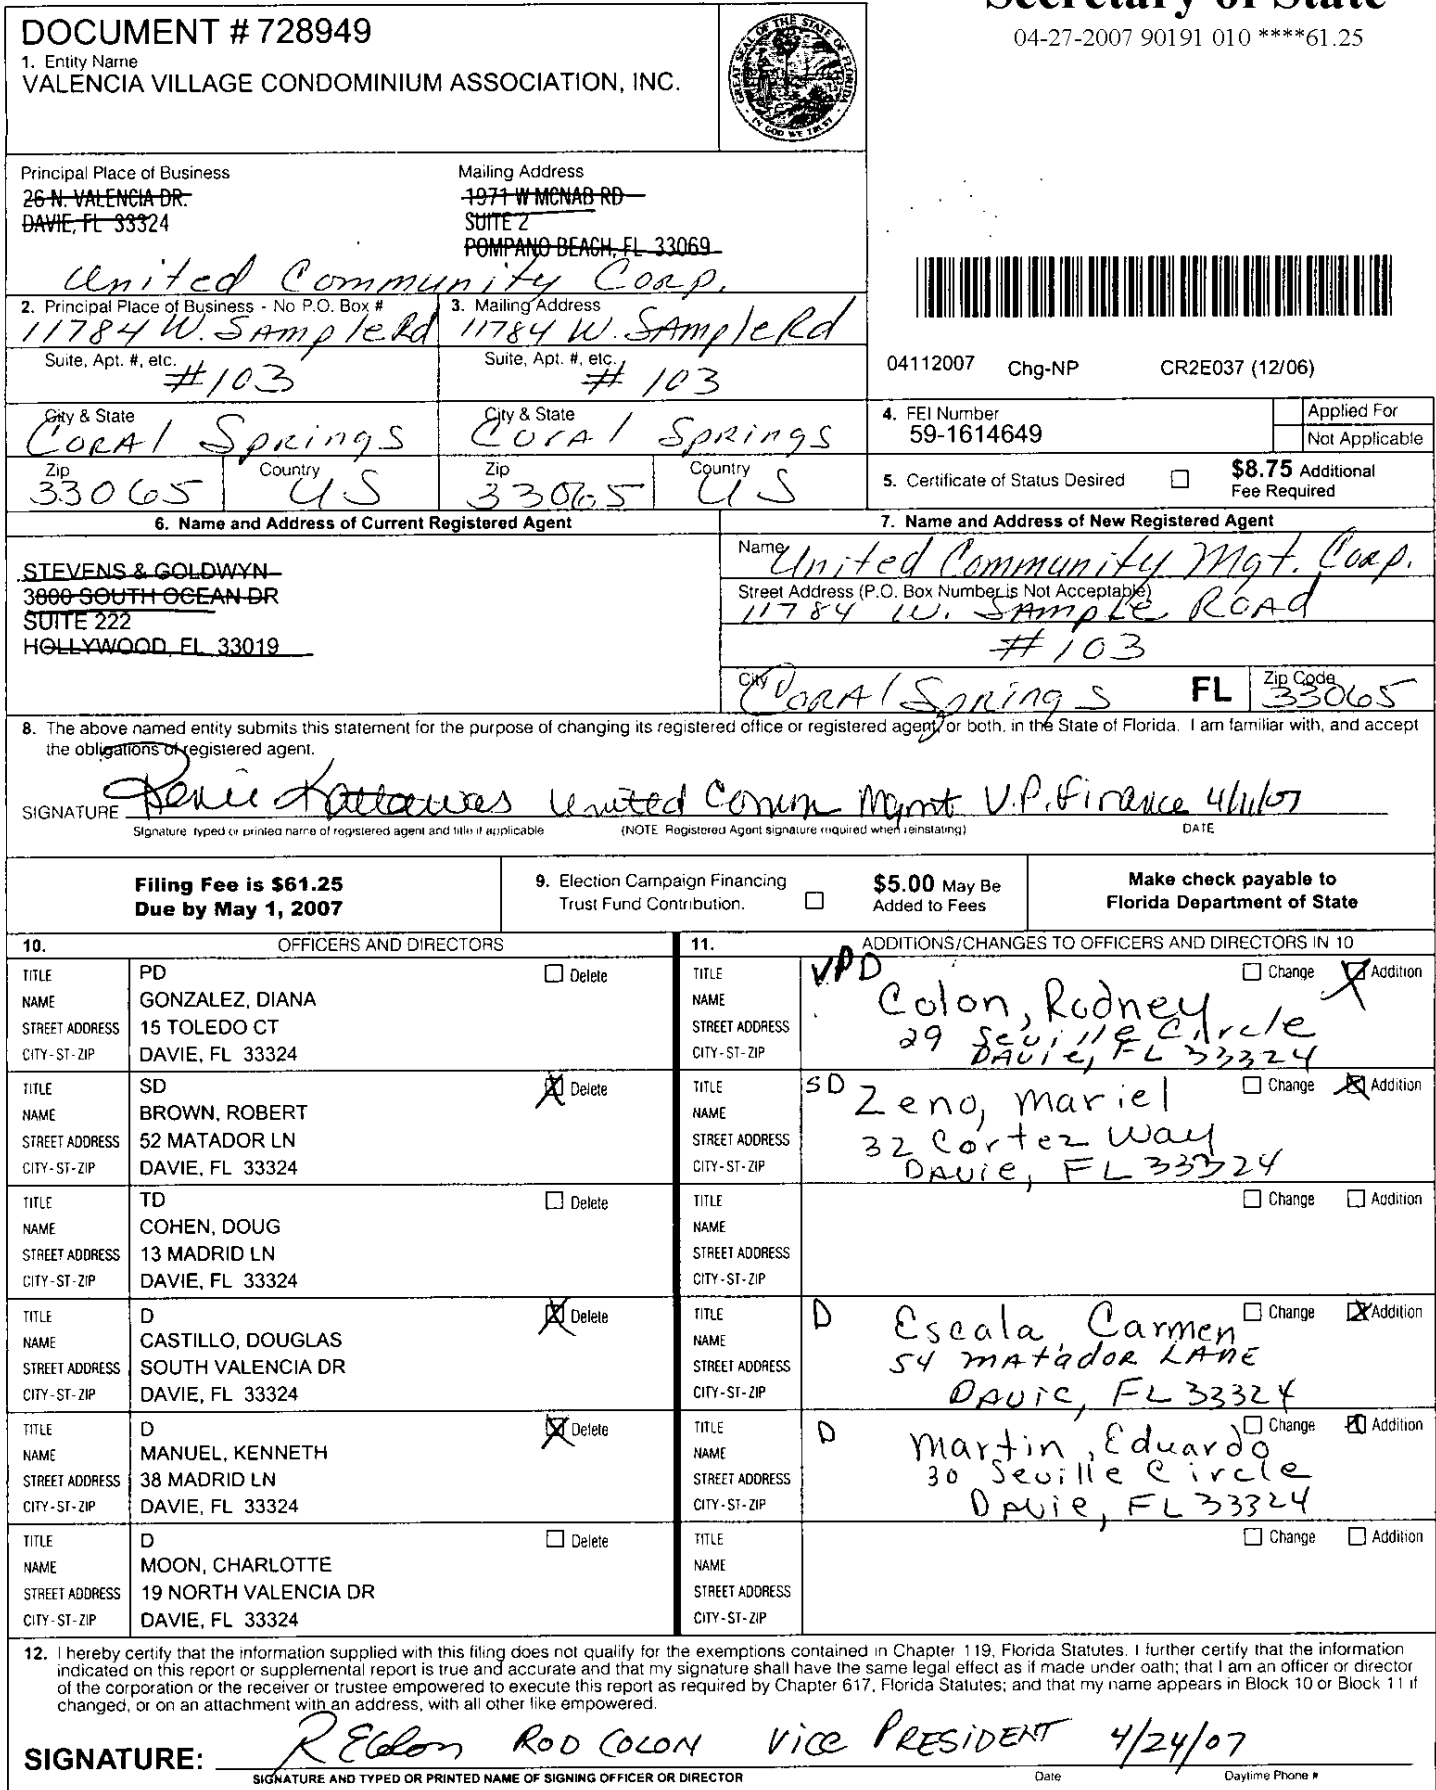 Secretary of State
04-27-2007 90191 010 ****61.25
DOCUMENT # 728949
1. Entity Name
VALENCIA VILLAGE CONDOMINIUM ASSOCIATION, INC.
GREAT SEAL OF THE STATE OF FLORIDA
IN GOD WE TRUST
Principal Place of Business
26 N. VALENCIA DR.
DAVIE, FL 33324
Mailing Address
1971 W MCNAB RD
SUITE 2
POMPANO BEACH, FL 33069
United Community Corp.
2. Principal Place of Business - No P.O. Box #
11784 W. Sample Rd
3. Mailing Address
11784 W. Sample Rd
Suite, Apt. #, etc.
#103
Suite, Apt. #, etc.
# 103
04112007 Chg-NP CR2E037 (12/06)
City & State
Coral Springs
City & State
Coral Springs
4. FEI Number
59-1614649
Applied For
Not Applicable
Zip
33065
Country
US
Zip
33065
Country
US
5. Certificate of Status Desired
$8.75 Additional
Fee Required
6. Name and Address of Current Registered Agent
STEVENS & GOLDWYN
3800 SOUTH OCEAN DR
SUITE 222
HOLLYWOOD, FL 33019
7. Name and Address of New Registered Agent
Name
United Community Mgt. Corp.
Street Address (P.O. Box Number is Not Acceptable)
11784 W. Sample Road
#103
City
Coral Springs
FL
Zip Code
33065
8. The above named entity submits this statement for the purpose of changing its registered office or registered agent, or both, in the State of Florida. I am familiar with, and accept
the obligations of registered agent.
SIGNATURE United Comm Mgmt V.P. Finance 4/11/07
Signature typed or printed name of registered agent and title if applicable (NOTE Registered Agent signature required when reinstating) DATE
Filing Fee is $61.25
Due by May 1, 2007
9. Election Campaign Financing
Trust Fund Contribution.
$5.00 May Be
Added to Fees
Make check payable to
Florida Department of State
10. OFFICERS AND DIRECTORS
11. ADDITIONS/CHANGES TO OFFICERS AND DIRECTORS IN 10
TITLE PD Delete
NAME GONZALEZ, DIANA
STREET ADDRESS 15 TOLEDO CT
CITY-ST-ZIP DAVIE, FL 33324
TITLE VPD Change Addition
NAME Colon, Rodney
STREET ADDRESS 29 Seville Circle
CITY-ST-ZIP Davie, FL 33324
TITLE SD Delete
NAME BROWN, ROBERT
STREET ADDRESS 52 MATADOR LN
CITY-ST-ZIP DAVIE, FL 33324
TITLE SD Change Addition
NAME Zeno, Mariel
STREET ADDRESS 32 Cortez Way
CITY-ST-ZIP Davie, FL 33324
TITLE TD Delete
NAME COHEN, DOUG
STREET ADDRESS 13 MADRID LN
CITY-ST-ZIP DAVIE, FL 33324
TITLE Change Addition
NAME
STREET ADDRESS
CITY-ST-ZIP
TITLE D Delete
NAME CASTILLO, DOUGLAS
STREET ADDRESS SOUTH VALENCIA DR
CITY-ST-ZIP DAVIE, FL 33324
TITLE D Change Addition
NAME Escala, Carmen
STREET ADDRESS 54 Matador Lane
CITY-ST-ZIP Davie, FL 33324
TITLE D Delete
NAME MANUEL, KENNETH
STREET ADDRESS 38 MADRID LN
CITY-ST-ZIP DAVIE, FL 33324
TITLE D Change Addition
NAME Martin, Eduardo
STREET ADDRESS 30 Seville Circle
CITY-ST-ZIP Davie, FL 33324
TITLE D Delete
NAME MOON, CHARLOTTE
STREET ADDRESS 19 NORTH VALENCIA DR
CITY-ST-ZIP DAVIE, FL 33324
TITLE Change Addition
NAME
STREET ADDRESS
CITY-ST-ZIP
12. I hereby certify that the information supplied with this filing does not qualify for the exemptions contained in Chapter 119, Florida Statutes. I further certify that the information
indicated on this report or supplemental report is true and accurate and that my signature shall have the same legal effect as if made under oath; that I am an officer or director
of the corporation or the receiver or trustee empowered to execute this report as required by Chapter 617, Florida Statutes; and that my name appears in Block 10 or Block 11 if
changed, or on an attachment with an address, with all other like empowered.
SIGNATURE: REColon ROD COLON Vice PRESIDENT 4/24/07
SIGNATURE AND TYPED OR PRINTED NAME OF SIGNING OFFICER OR DIRECTOR Date Daytime Phone #